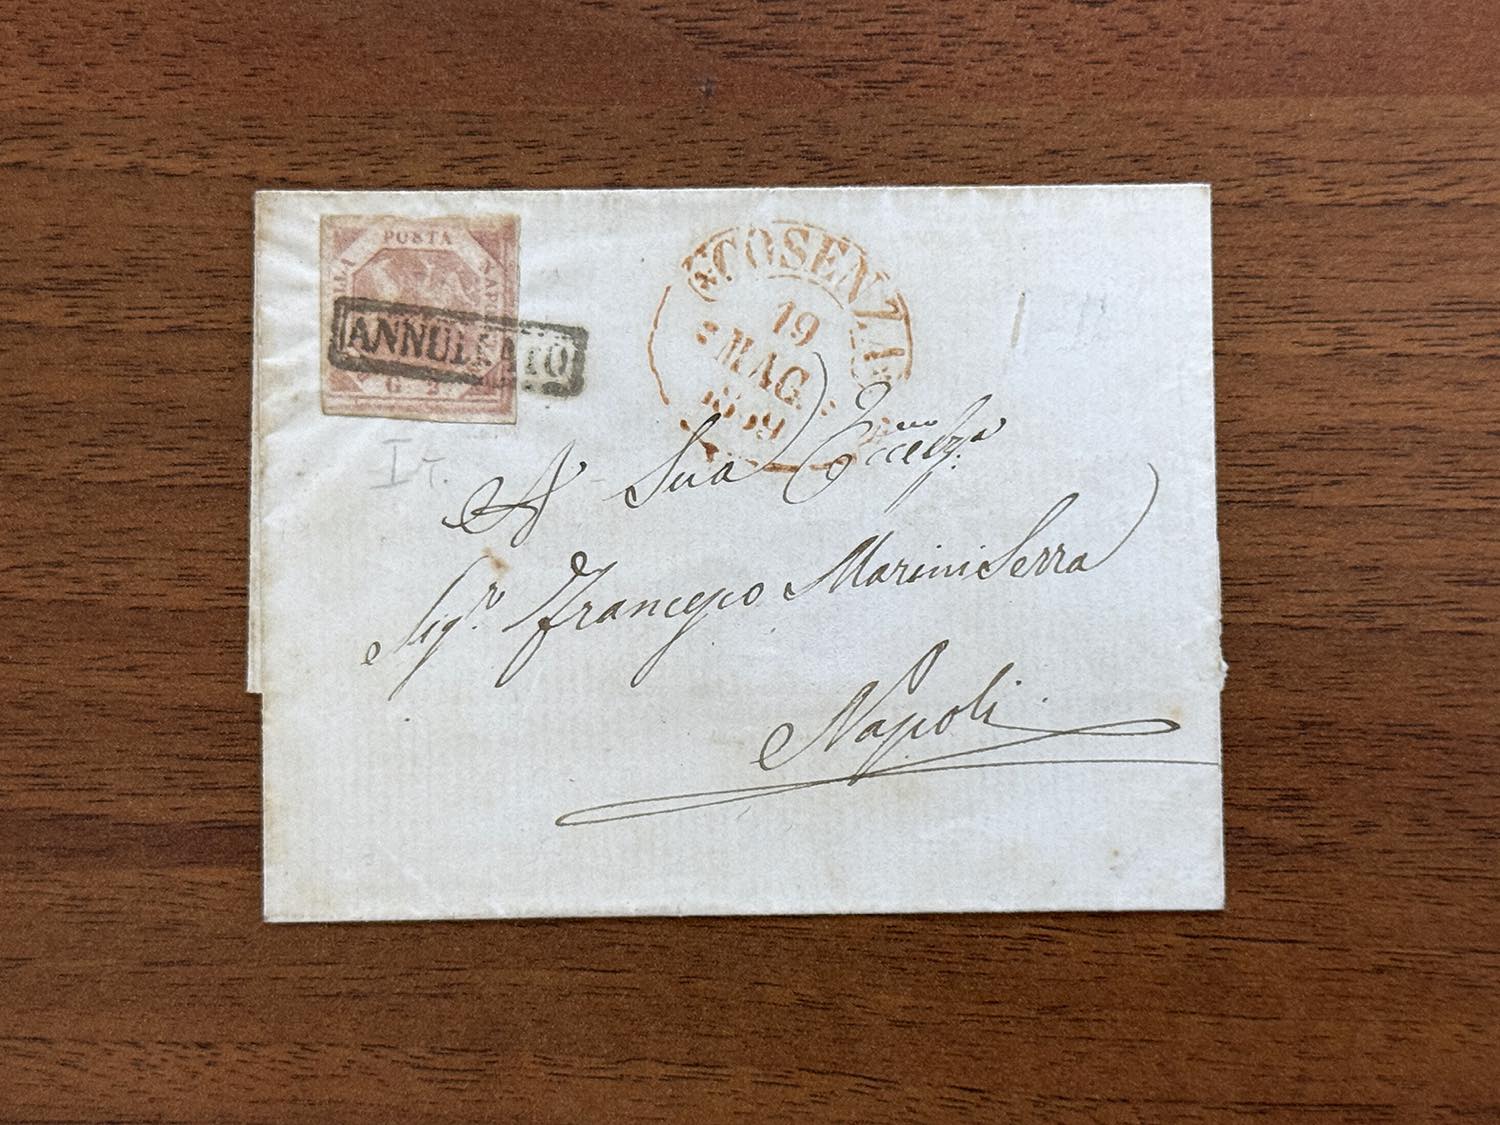 POSTA NAPO LLA
G. 2
ANNULLATO
COSENZA
19
MAG.
1859
I T.
A Sua Eccellza
Sigr. Francesco Marini Serra
Napoli.